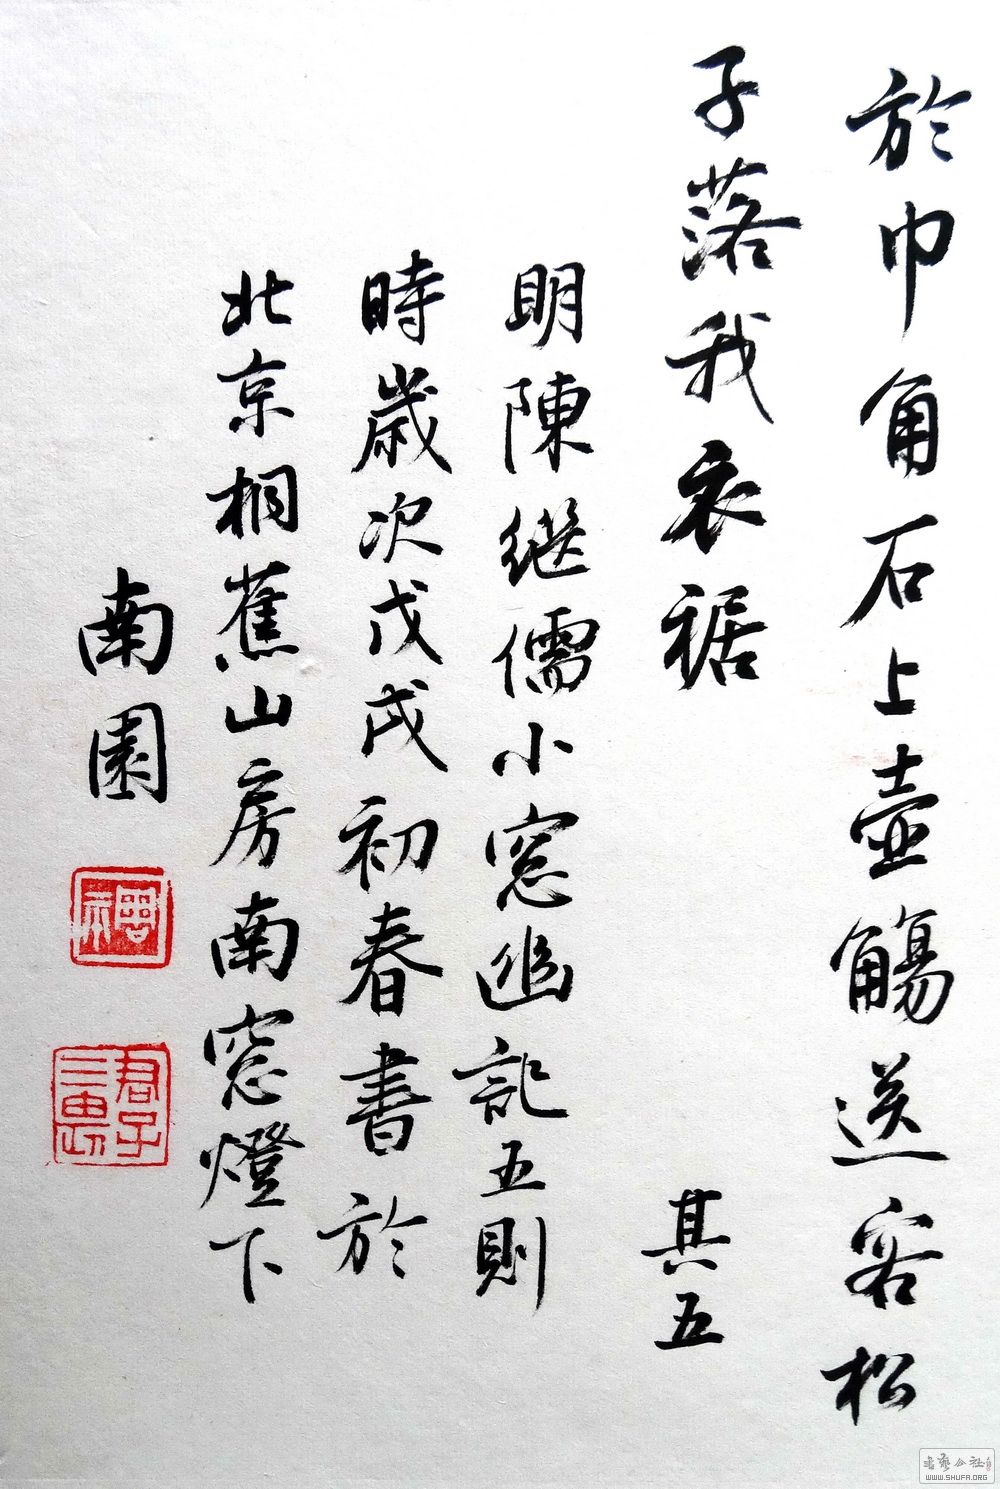 於巾角石上壺觴送客松
子落我衣裾 其五
明陳継儒小窓幽記五則
時歲次戊戌初春書於
北京桐蕉山房南窓燈下
南園
君子
三思
WWW.SHUFA.ORG